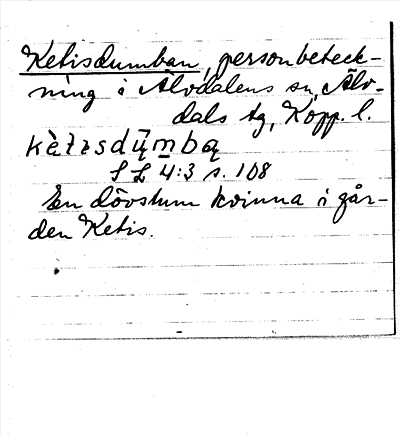 Ketisdumban, personbeteck-
ning i Älvdalens sn, Älv-
dals tg, Kopp. l.
kètɪsdų̄mbą
S L 4:3 s. 108
En dövstum kvinna i går-
den Ketis.